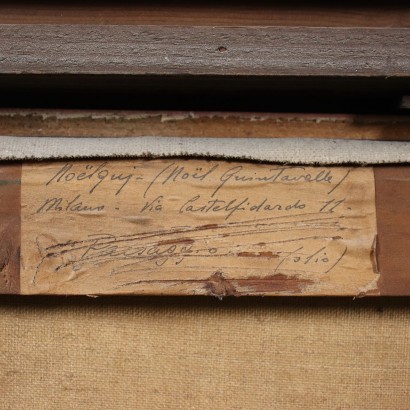 Noëlquy - (Noël Quintavalle)
Milano - Via Castelfidardo 11 -
Paesaggio (olio)